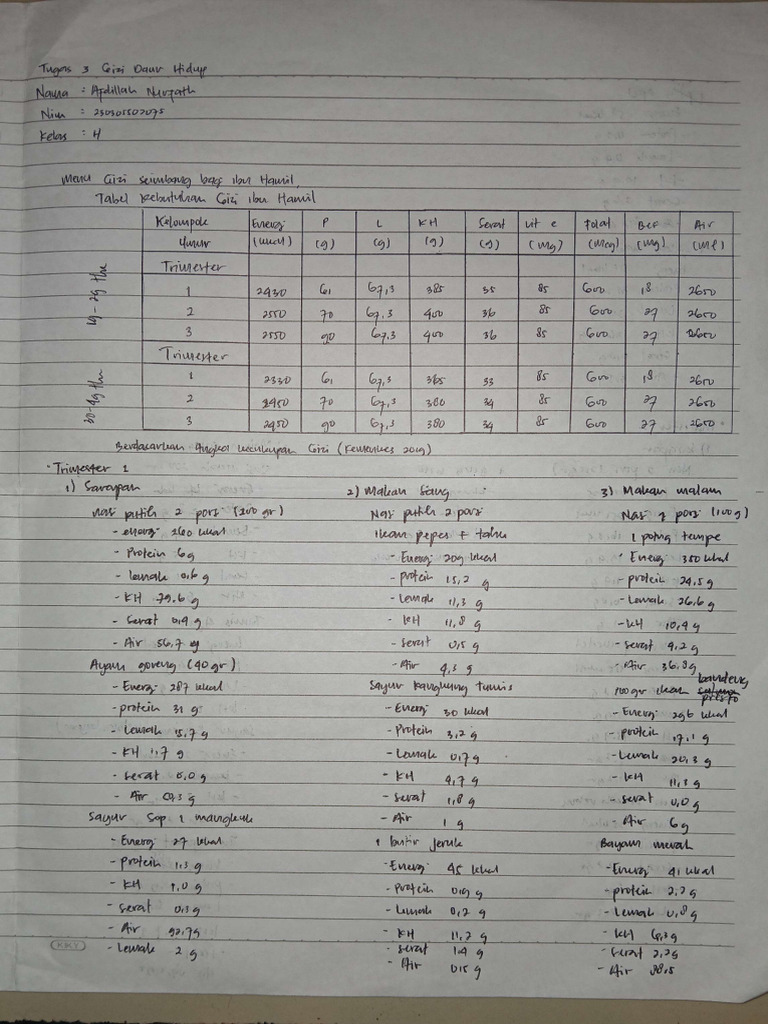 Tugas 3 Gizi Daur Hidup
Nama : Apdillah Nurfath
Nim : 230305502075
Kelas : H
Menu Gizi seimbang bagi ibu Hamil,
Tabel Kebutuhan Gizi ibu Hamil
Kelompok Umur Energi (kkal) P (g) L (g) KH (g) Serat (g) vit c (mg) Folat (mcg) Besi (mg) Air (ml)
19-29 thn
Trimester
1 2430 61 67,3 385 35 85 600 18 2650
2 2550 70 67,3 400 36 85 600 27 2650
3 2550 90 67,3 400 36 85 600 27 2650
30-49 thn
Trimester
1 2330 61 67,3 365 33 85 600 18 2650
2 2450 70 67,3 380 34 85 600 27 2650
3 2450 90 67,3 380 34 85 600 27 2650
Berdasarkan Angka kecukupan Gizi (Kemenkes 2019)
• Trimester 1
1) Sarapan
Nasi putih 2 porsi (200 gr)
- energi 260 kkal
- Protein 6 g
- lemak 0,6 g
- KH 79.6 g
- Serat 0,4 g
- Air 56,7 g
Ayam goreng (40 gr)
- Energi 287 kkal
- protein 31 g
- Lemak 15,7 g
- KH 1,7 g
- serat 0,0 g
- Air 0,3 g
Sayur Sop 1 mangkuk
- Energi 27 kkal
- protein 1,3 g
- KH 1,0 g
- serat 0,3 g
- Air 92,7 g
- Lemak 2 g
2) Makan Siang
Nasi putih 2 porsi
Ikan pepes + tahu
- Energi 209 kkal
- protein 15,2 g
- Lemak 11,3 g
- KH 11,8 g
- serat 0,5 g
- Air 4,3 g
Sayur Kangkung tumis
- Energi 30 kkal
- Protein 3,2 g
- Lemak 0,7 g
- KH 4,7 g
- serat 1,8 g
- Air 1 g
1 butir jeruk
- Energi 45 kkal
- Protein 0,9 g
- Lemak 0,2 g
- KH 11,2 g
- serat 1.4 g
- Air 0,5 g
3) Makan malam
Nasi porsi (100 g)
1 potng tempe
- Energi 350 kkal
- protein 24,5 g
- Lemak 26,6 g
- KH 10,4 g
- serat 4,2 g
- Air 36,8 g
100 gr ikan bandeng presto
- Energi 296 kkal
- protein 17,1 g
- Lemak 20,3 g
- KH 11,3 g
- serat 0,0 g
- Air 6 g
Bayam merah
- Energi 41 kkal
- protein 2,2 g
- Lemak 0,8 g
- KH 6,3 g
- Serat 2,2 g
- Air 88,5
KKY